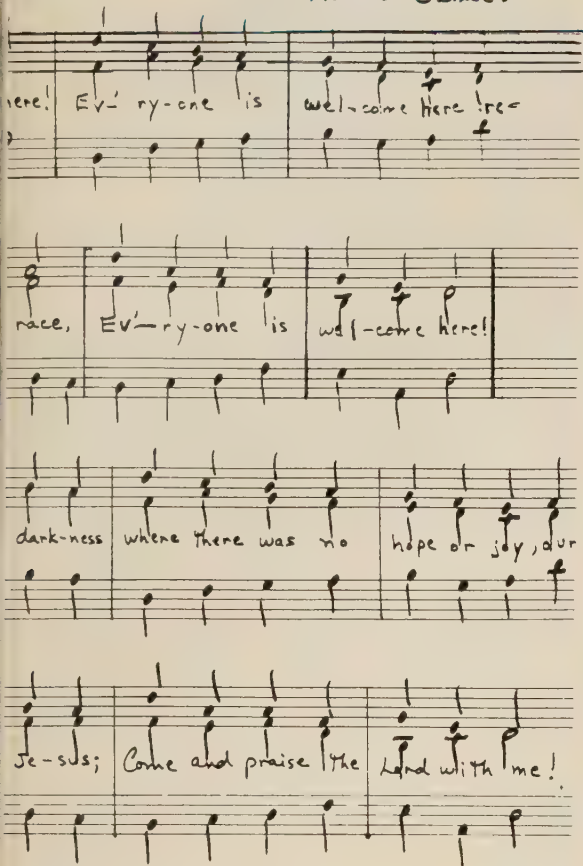 here! Ev'-ry-one is wel-come here! re-
race, Ev'-ry-one is wel-come here!
dark-ness where there was no hope or joy, our
Je-sus; Come and praise the Lord with me!